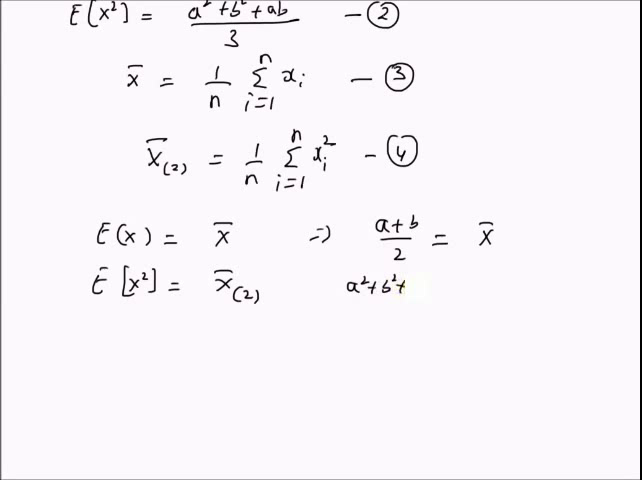 E[x²] = (a² + b² + ab)/3 — ②
x̄ = 1/n Σ_{i=1}^{n} xᵢ — ③
X̄₍₂₎ = 1/n Σ_{i=1}^{n} xᵢ² — ④
E(x) = X̄ ⇒ (a+b)/2 = X̄
E[x²] = X̄₍₂₎ a²+b²+